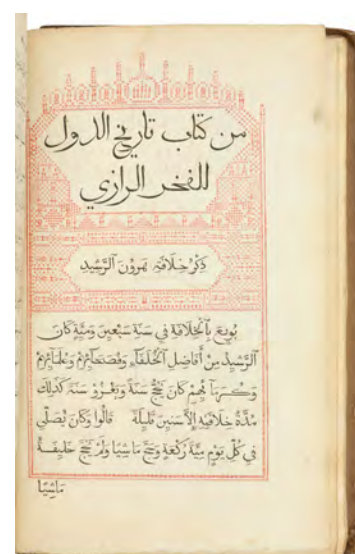 من كتاب تاريخ الدول
للفخر الرازي
ذِكْرُ خِلَافَةِ هٰرُونَ ٱلرَّشِيدِ
بُويِعَ بِٱلْخِلَافَةِ فِي سَنَةِ سَبْعِينَ وَمِيَّةٍ كَانَ
ٱلرَّشِيدُ مِنْ أَفَاضِلِ ٱلْخُلَفَآءِ وَفُصَحَآئِهِمْ وَعُلَمَآئِهِمْ
وَكُرَمَآئِهِمْ كَانَ يَحُجُّ سَنَةً وَيَغْزُو سَنَةً كَذٰلِكَ
مُدَّةَ خِلَافَتِهِ إِلَّا سِنِينَ قَلِيلَةً قَالُوا وَكَانَ يُصَلِّي
فِي كُلِّ يَوْمٍ مِيَّةَ رَكْعَةٍ وَحَجَّ مَاشِيًا وَلَمْ يَحُجَّ خَلِيفَةٌ
مَاشِيًا